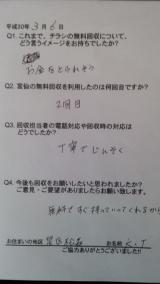 平成30年3月6日
Q1. これまで、チラシの無料回収について、
どう言うイメージをお持ちでしたか?
お金をとられそう
Q2. 富仙の無料回収を利用したのは何回目ですか?
2回目
Q3. 回収担当者の電話対応や回収時の対応は
どうでしたか?
丁寧でじんそく
Q4. 今後も回収をお願いしたいと思われましたか?
ご意見・ご要望がありましたらお願い致します。
無料ですぐ持っていってくれるから
お住まいの地区
お名前 K.T
ご協力ありがとうございました!!